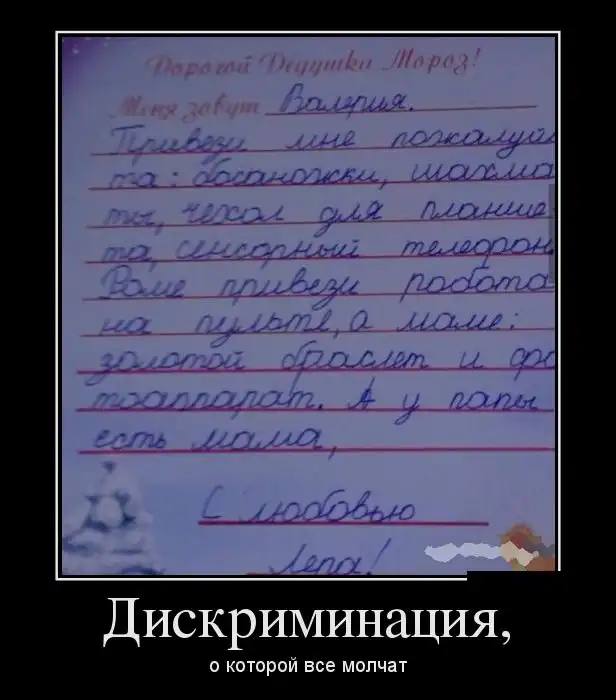 Дорогой Дедушка Мороз!
Меня зовут Валерия.
Привези мне пожалуй
та: босаножки, шахма
ты, чехол для планше
та, сенсорный телефон
Роме привези робота
на пульте, а маме:
золотой браслет и фо
тоаппарат. А у папы
есть мама,
С любовью
Лера!
Дискриминация,
о которой все молчат